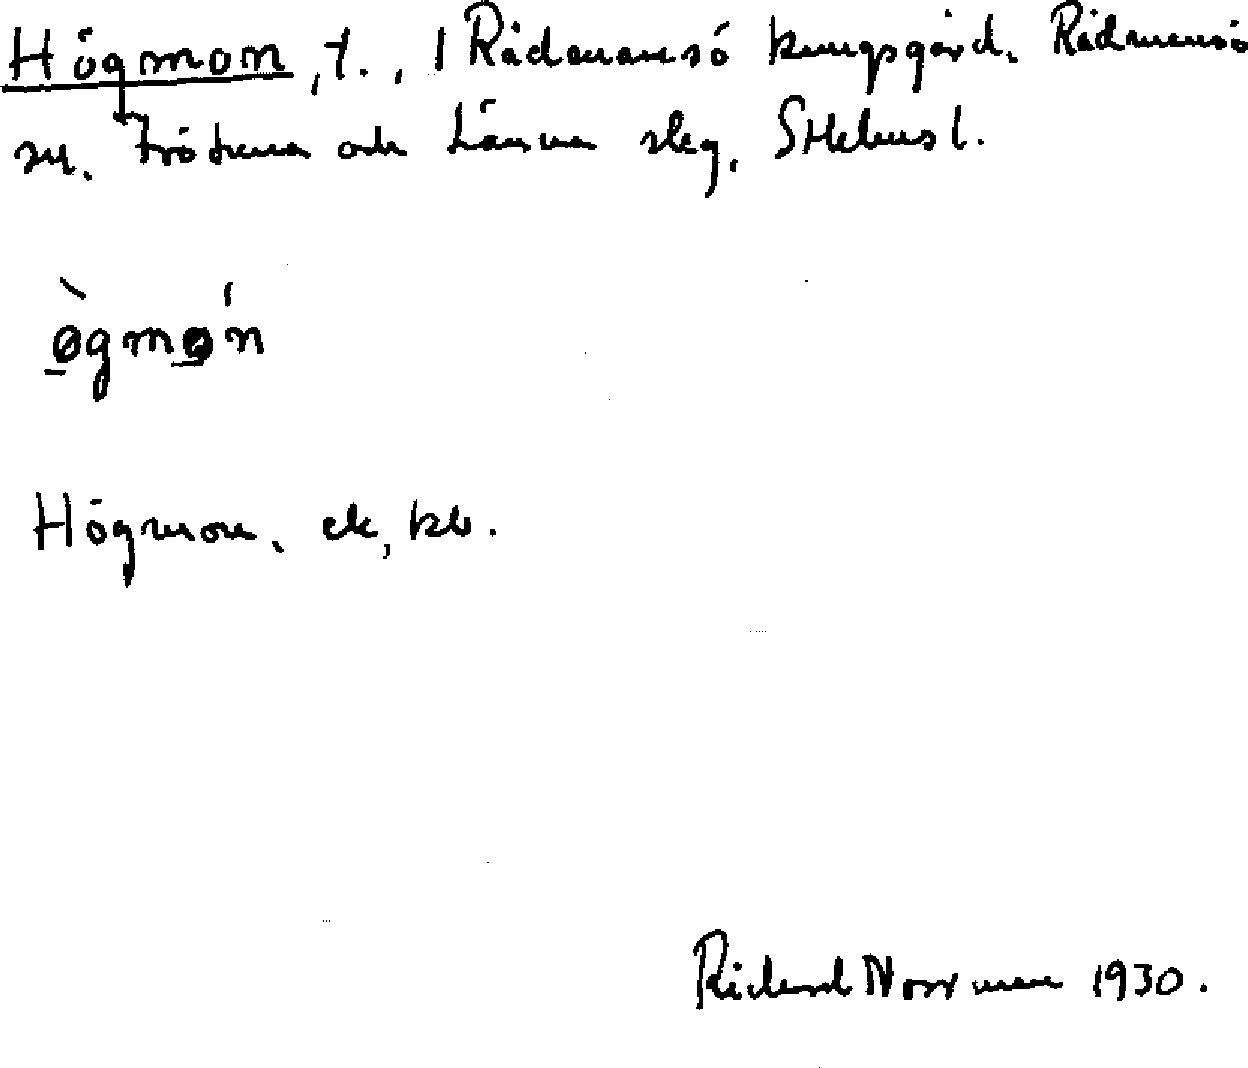 Högmon, t., 1 Rådmansö kungsgård. Rådmansö
sn. Frötuna och Länna skg, Sthlms l.
ògmǿn
Högmon. ek, kb.
Rickard Norrman 1930.